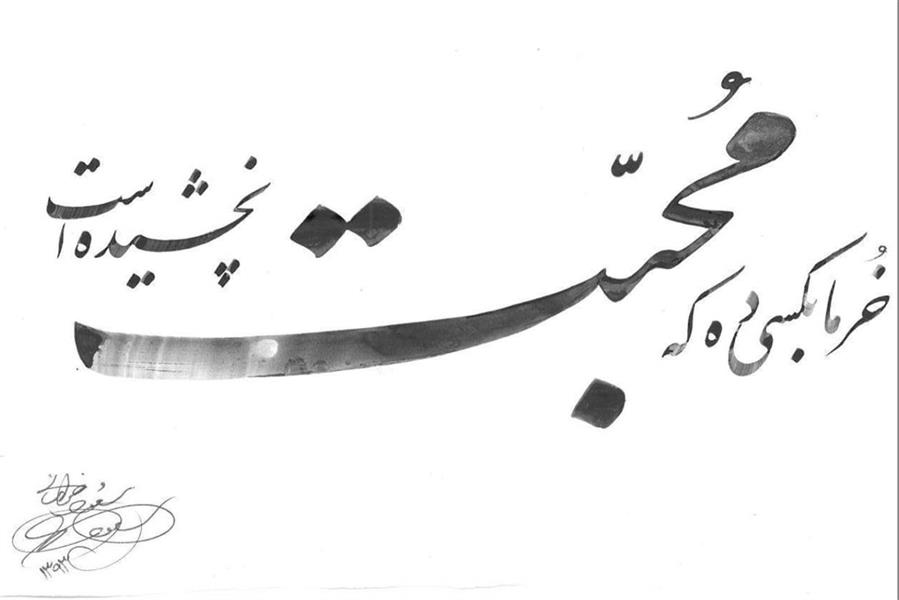 خُرما بکسی ده که
مُحبّت
نچشیده است
۱۳۹۳